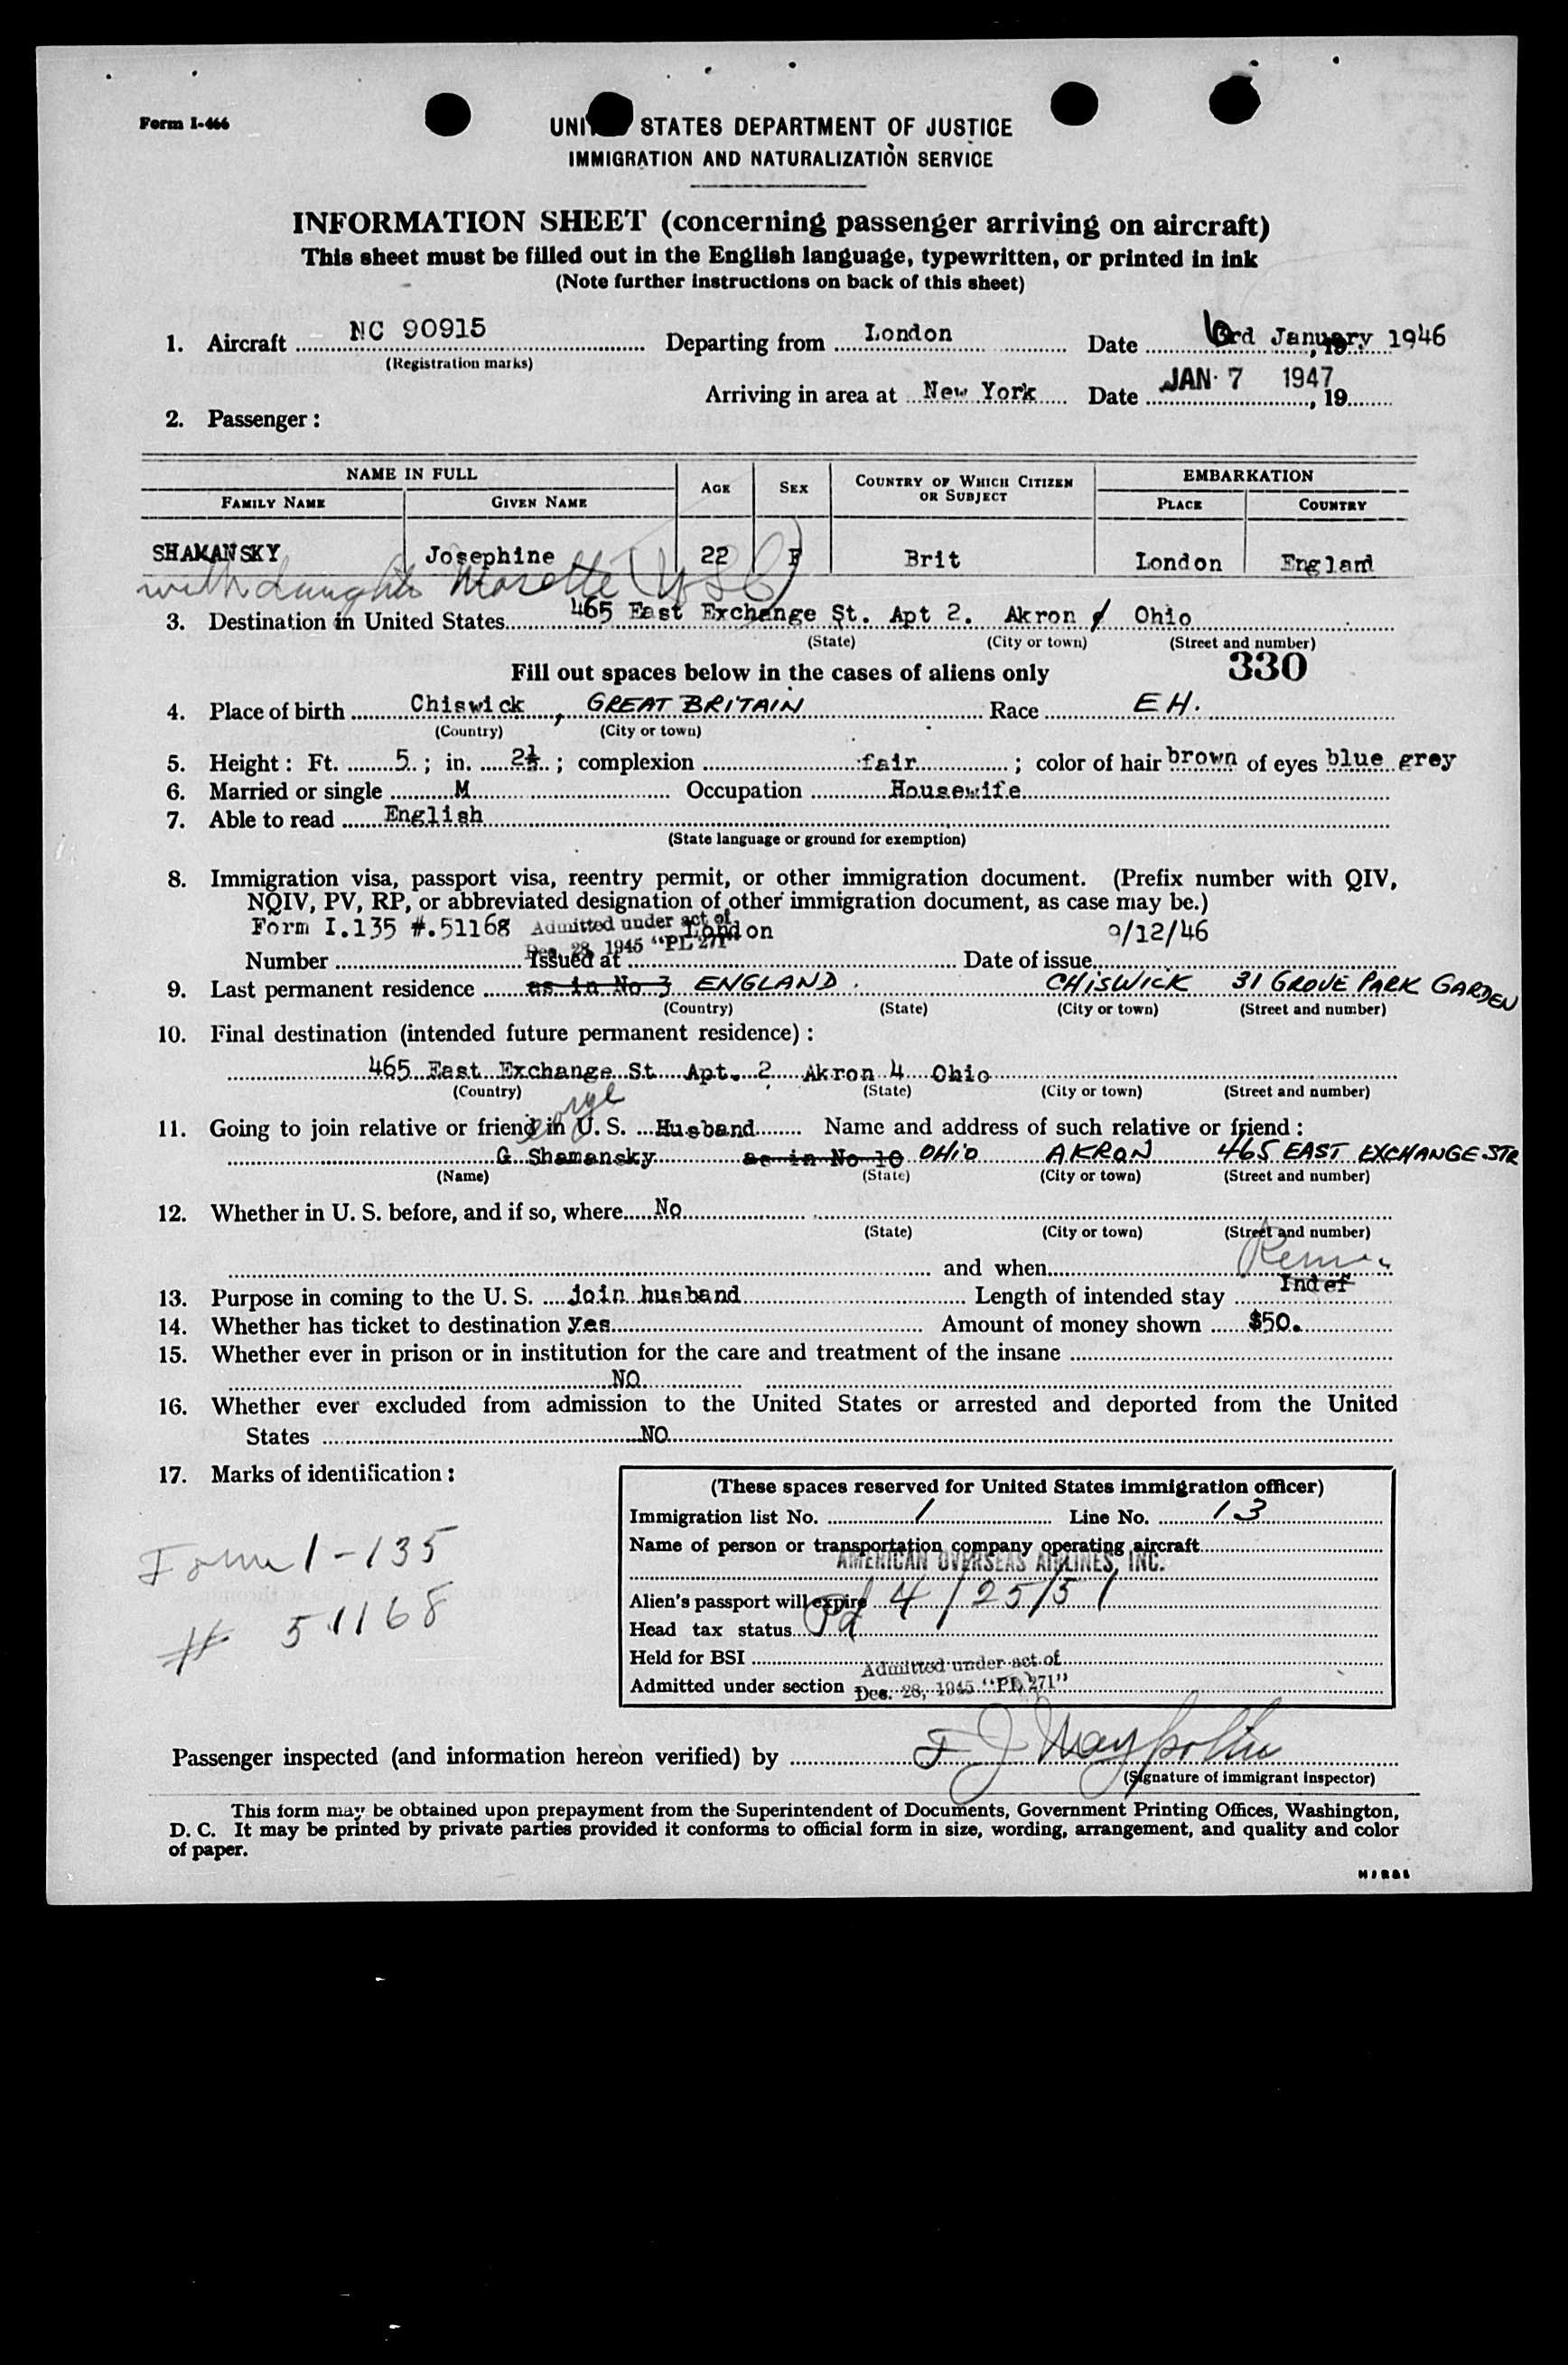 Form I-466
UNITED STATES DEPARTMENT OF JUSTICE
IMMIGRATION AND NATURALIZATION SERVICE
INFORMATION SHEET (concerning passenger arriving on aircraft)
This sheet must be filled out in the English language, typewritten, or printed in ink
(Note further instructions on back of this sheet)
1. Aircraft NC 90915 Departing from London Date 6rd January 1946, 19
(Registration marks)
Arriving in area at New York Date JAN 7 1947, 19
2. Passenger:
NAME IN FULL AGE SEX COUNTRY OF WHICH CITIZEN OR SUBJECT EMBARKATION
FAMILY NAME GIVEN NAME PLACE COUNTRY
SHAMANSKY Josephine 22 F Brit London England
with daughter (USC)
3. Destination in United States 465 East Exchange St. Apt 2. Akron Ohio
(State) (City or town) (Street and number)
Fill out spaces below in the cases of aliens only 330
4. Place of birth Chiswick, GREAT BRITAIN Race EH.
(Country) (City or town)
5. Height: Ft. 5; in. 2½; complexion fair; color of hair brown of eyes blue grey
6. Married or single M Occupation Housewife
7. Able to read English
(State language or ground for exemption)
8. Immigration visa, passport visa, reentry permit, or other immigration document. (Prefix number with QIV,
NQIV, PV, RP, or abbreviated designation of other immigration document, as case may be.)
Form I.135 #.51168 Admitted under act of Dec. 28, 1945 "PL 271" London 9/12/46
Number Issued at Date of issue
9. Last permanent residence as in No 3 ENGLAND. CHISWICK 31 GROVE PARK GARDEN
(Country) (State) (City or town) (Street and number)
10. Final destination (intended future permanent residence):
465 East Exchange St Apt. 2 Akron 4 Ohio
(Country) (State) (City or town) (Street and number)
eorge
11. Going to join relative or friend in U. S. Husband Name and address of such relative or friend:
G Shamansky as in No 10 OHIO AKRON 465 EAST EXCHANGE STR
(Name) (State) (City or town) (Street and number)
12. Whether in U. S. before, and if so, where No
(State) (City or town) (Street and number)
and when
13. Purpose in coming to the U. S. join husband Length of intended stay Indef
14. Whether has ticket to destination yes Amount of money shown $50.
15. Whether ever in prison or in institution for the care and treatment of the insane
NO
16. Whether ever excluded from admission to the United States or arrested and deported from the United
States NO
17. Marks of identification:
Form 1-135
# 51168
(These spaces reserved for United States immigration officer)
Immigration list No. 1 Line No. 13
Name of person or transportation company operating aircraft
AMERICAN OVERSEAS AIRLINES, INC.
Alien's passport will expire 4/25/51
Head tax status Pd
Held for BSI
Admitted under section Admitted under act of Dec. 28, 1945 "PL 271"
Passenger inspected (and information hereon verified) by
(Signature of immigrant inspector)
This form may be obtained upon prepayment from the Superintendent of Documents, Government Printing Offices, Washington,
D. C. It may be printed by private parties provided it conforms to official form in size, wording, arrangement, and quality and color
of paper.